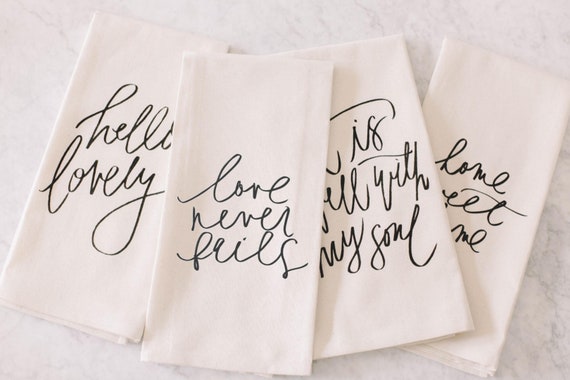 hello
lovely
love
never
fails
is
with
my soul
home